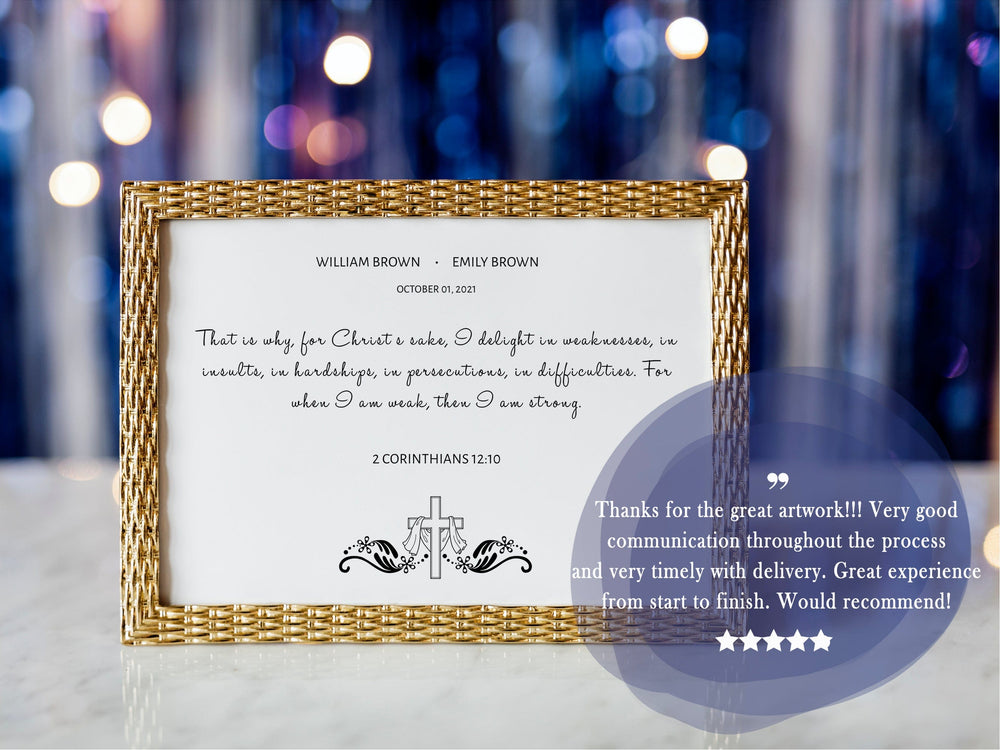 WILLIAM BROWN • EMILY BROWN
OCTOBER 01, 2021
That is why, for Christ's sake, I delight in weaknesses, in
insults, in hardships, in persecutions, in difficulties. For
when I am weak, then I am strong.
2 CORINTHIANS 12:10
”
Thanks for the great artwork!!! Very good
communication throughout the process
and very timely with delivery. Great experience
from start to finish. Would recommend!